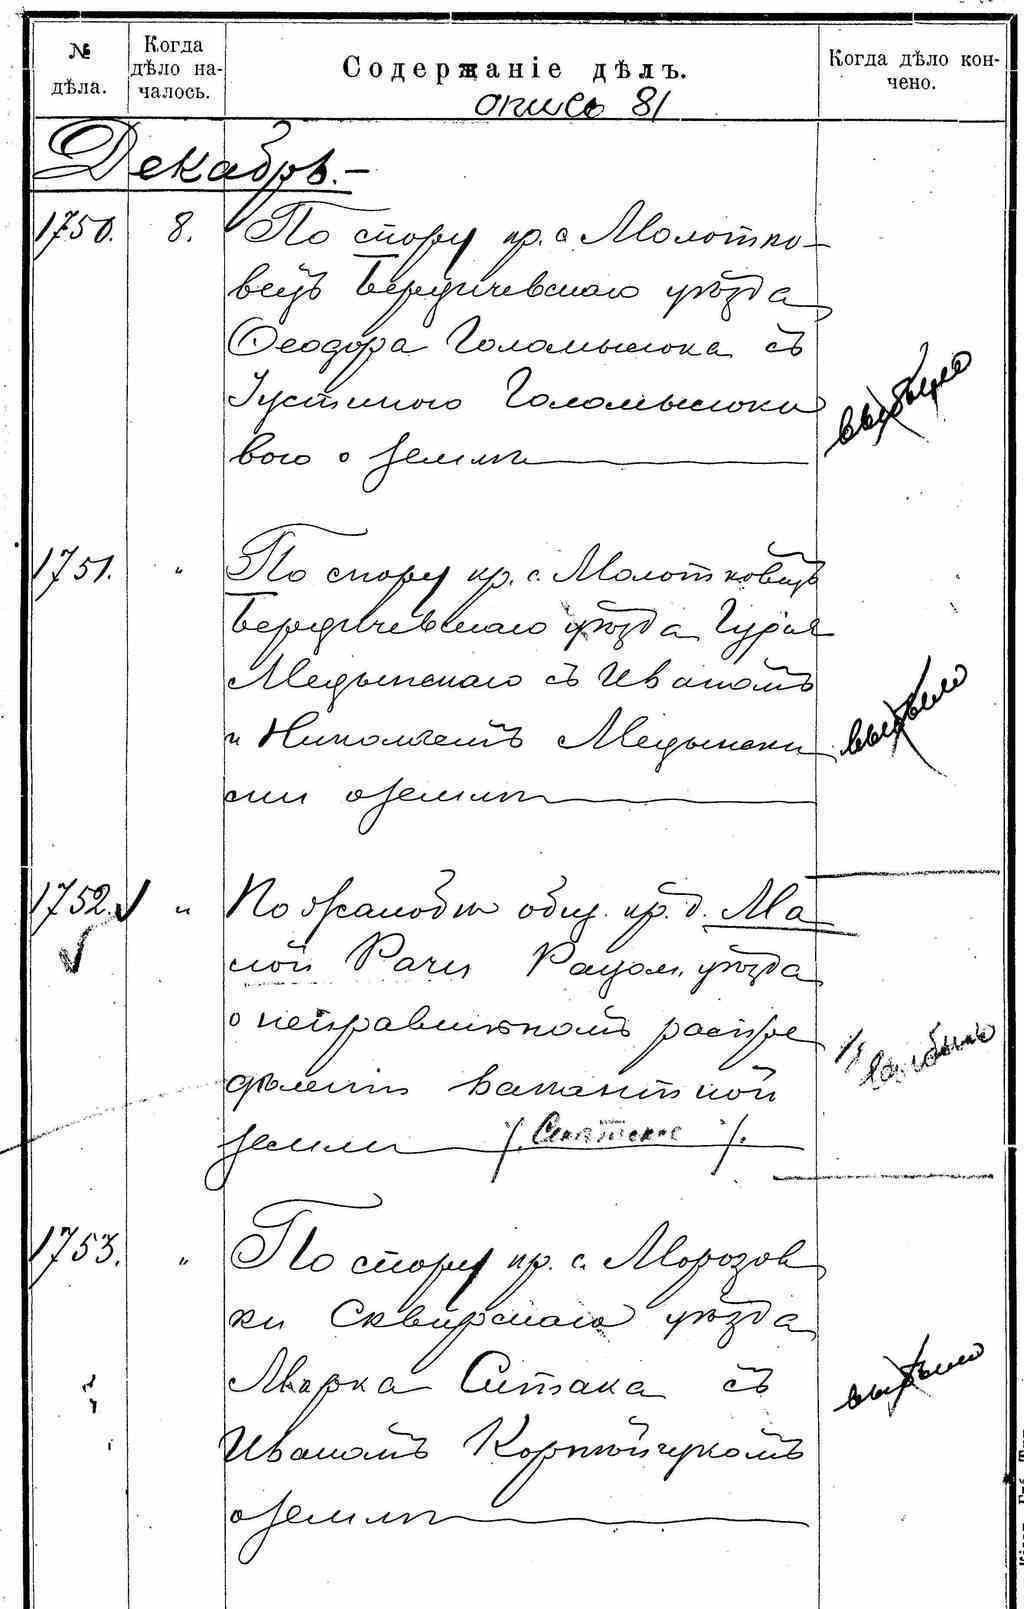 № дѣла.
Когда дѣло на-
чалось.
Содержаніе дѣлъ.
Когда дѣло кон-
чено.
опись 81
Декабрь.-
1750. 8. По спору кр. с. Молотко-
вецъ Бердичевскаго уѣзда
Ѳеодора Голомысюка съ
Іустиною Голомысюко
вою о землѣ
выбыло
1751. " По спору кр. с. Молотковецъ
Бердичевскаго уѣзда Гурія
Медынскаго съ Иваномъ
и Николаемъ Медынски
ми о землѣ
выбыло
1752. " По жалобѣ общ. кр. д. Ма
лой Рачи Радом. уѣзда
о неправильномъ распре
дѣленіи вакантной
земли
1753. " По спору кр. с. Морозов
ки Сквирскаго уѣзда
Марка Ситака съ
Иваномъ Корнійчукомъ
о землѣ
выбыло